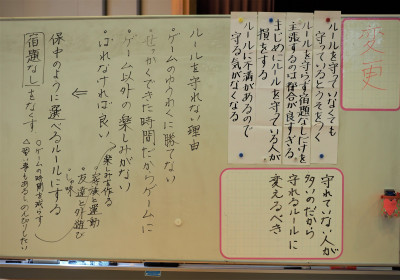 変更
ルールを守っていなくても
守っているとうそをつく
ルールを守らず宿題なしだけを
主張するのは都合が良すぎる。
まじめにルールを守っている人が
損をする
ルールに不満があるので
守る気がなくなる
守れていない人が
多いのだから
守れるルールに
変えるべき
ルールを守れない理由
・ゲームのゆうわくに勝てない
・せっかくできた時間だからゲームに
・ゲーム以外の楽しみがない
・ばれなければ良い
楽しみを作る
・家族と運動
・友達と外遊び
・しゅ味
←
保中のように選べるルールにする
宿題なしをなくす
○ゲームの時間を減らす